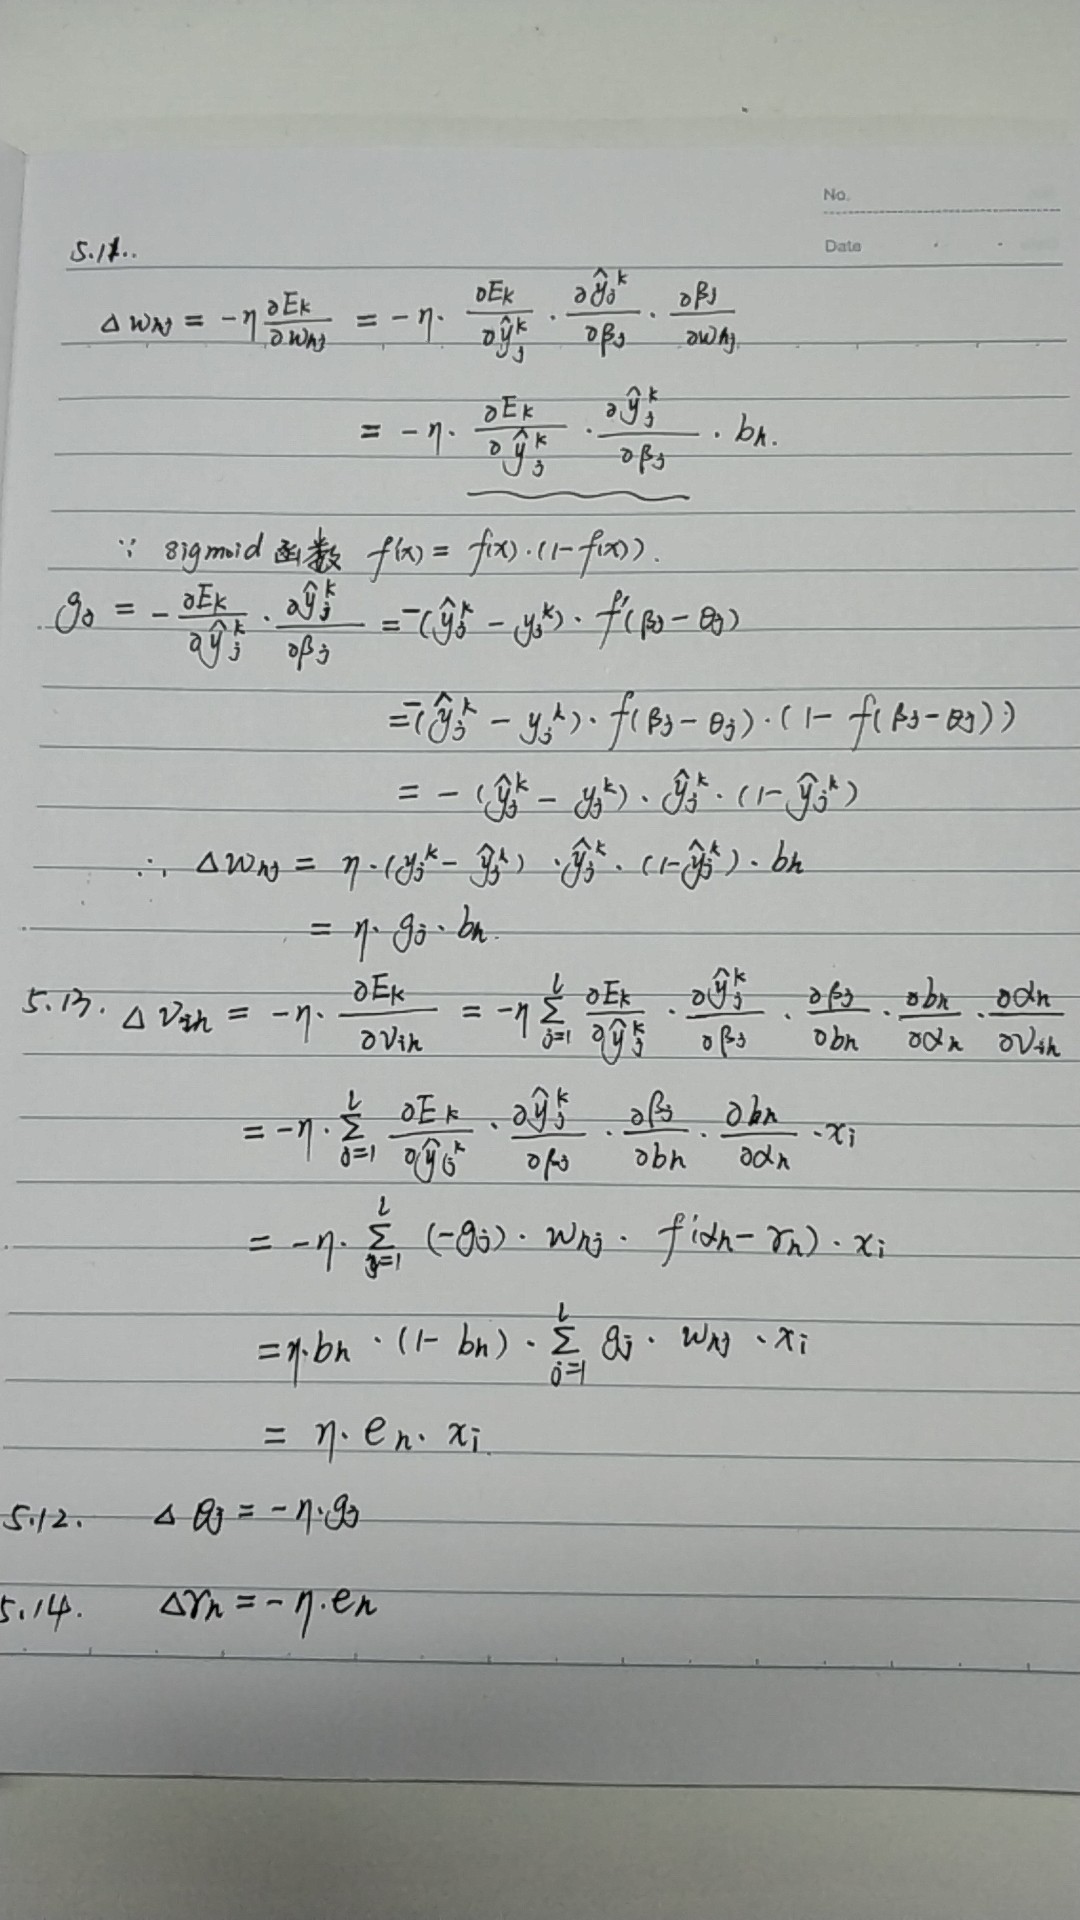 No.
Date
5.11..
Δw_hj = -η ∂E_k/∂w_hj = -η · ∂E_k/∂ŷ_j^k · ∂ŷ_j^k/∂β_j · ∂β_j/∂w_hj
= -η · ∂E_k/∂ŷ_j^k · ∂ŷ_j^k/∂β_j · b_h.
∵ sigmoid 函数 f'(x) = f(x)·(1-f(x)).
g_j = -∂E_k/∂ŷ_j^k · ∂ŷ_j^k/∂β_j = -(ŷ_j^k - y_j^k) · f'(β_j - θ_j)
= -(ŷ_j^k - y_j^k) · f(β_j - θ_j) · (1 - f(β_j - θ_j))
= -(ŷ_j^k - y_j^k) · ŷ_j^k · (1-ŷ_j^k)
∴ Δw_hj = η·(y_j^k - ŷ_j^k) · ŷ_j^k · (1-ŷ_j^k) · b_h
= η · g_j · b_h.
5.13. Δv_ih = -η · ∂E_k/∂v_ih = -η Σ_{j=1}^{l} ∂E_k/∂ŷ_j^k · ∂ŷ_j^k/∂β_j · ∂β_j/∂b_h · ∂b_h/∂α_h · ∂α_h/∂v_ih
= -η · Σ_{j=1}^{l} ∂E_k/∂ŷ_j^k · ∂ŷ_j^k/∂β_j · ∂β_j/∂b_h · ∂b_h/∂α_h · x_i
= -η · Σ_{j=1}^{l} (-g_j) · w_hj · f'(α_h - γ_h) · x_i
= η·b_h · (1 - b_h) · Σ_{j=1}^{l} g_j · w_hj · x_i
= η · e_h · x_i.
5.12. Δθ_j = -η·g_j
5.14. Δγ_h = -η·e_h